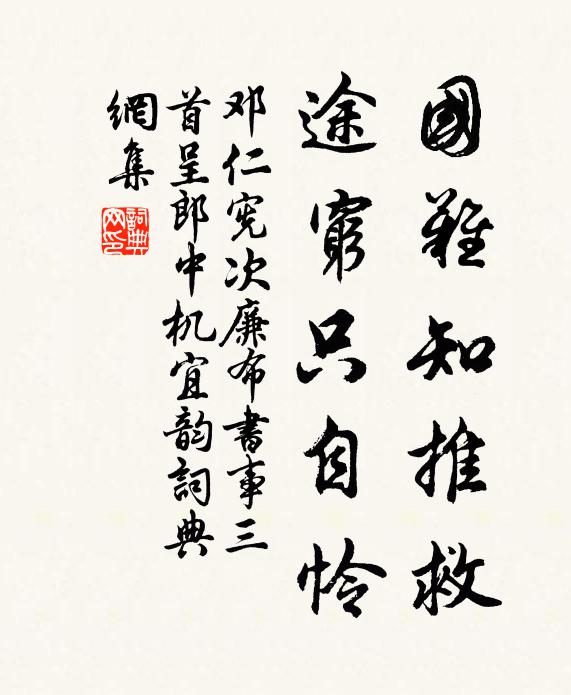 國難知推救
途窮只自怜
邓仁宪次廉布書事三
首呈郎中机宜韵詞典
網集
詞典
网印